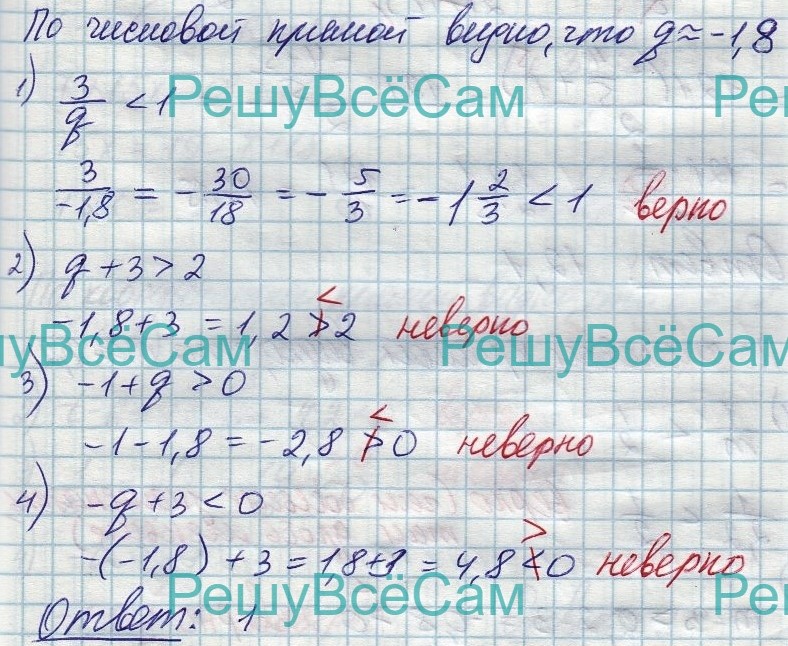 По числовой прямой видно, что q ≈ -1,8
1) 3/q < 1
РешуВсёСам Ре
3/-1,8 = - 30/18 = - 5/3 = -1 2/3 < 1 верно
2) q + 3 > 2
<
-1,8 + 3 = 1,2 > 2 неверно
шуВсёСам РешуВсёСам
3) -1 + q > 0
<
-1 - 1,8 = -2,8 > 0 неверно
4) -q + 3 < 0
>
-(-1,8) + 3 = 1,8 + 3 = 4,8 < 0 неверно
РешуВсёСам Ре
Ответ: 1